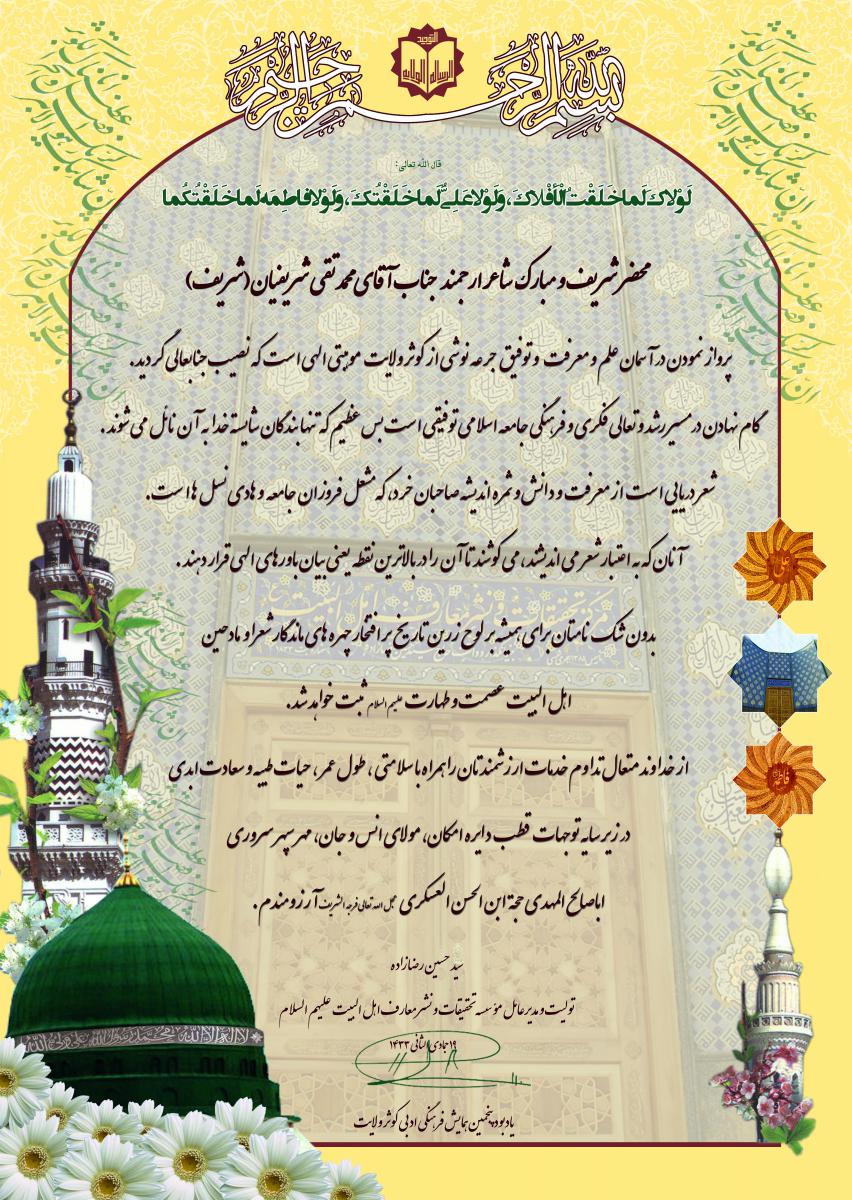 بسم الله الرحمن الرحیم
التوحید
الرسالة الولایة
قال الله تعالی:
لَوْلاکَ لَما خَلَقْتُ الْأَفْلاکَ، وَلَوْلا عَلِیٌّ لَما خَلَقْتُکَ، وَلَوْلا فاطِمَه لَما خَلَقْتُکُما
محضر شریف و مبارک شاعر ارجمند جناب آقای محمد تقی شریفیان (شریف)
پرواز نمودن در آسمان علم و معرفت و توفیق جرعه نوشی از کوثر ولایت موهبتی الهی است که نصیب جنابعالی گردید.
گام نهادن در مسیر رشد و تعالی فکری و فرهنگی جامعه اسلامی توفیقی است بس عظیم که تنها بندگان شایسته خدا به آن نائل می شوند.
شعر دریایی است از معرفت و دانش و ثمره اندیشه صاحبان خرد، که مشعل فروزان جامعه و هادی نسل ها است.
آنان که به اعتبار شعر می اندیشند، می کوشند تا آن را در بالاترین نقطه یعنی بیان باورهای الهی قرار دهند.
بدون شک نامتان برای همیشه بر لوح زرین تاریخ پر افتخار چهره های ماندگار شعرا و مادحین
اهل البیت عصمت و طهارت علیهم السلام ثبت خواهد شد.
از خداوند متعال تداوم خدمات ارزشمندتان را همراه با سلامتی، طول عمر، حیات طیبه و سعادت ابدی
در زیر سایه توجهات قطب دایره امکان، مولای انس و جان، مهر سپهر سروری
اباصالح المهدی حجة ابن الحسن العسکری عجل الله تعالی فرجه الشریف آرزومندم.
سید حسین رضازاده
تولیت و مدیر عامل مؤسسه تحقیقات و نشر معارف اهل البیت علیهم السلام
۱۹ جمادی الثانی ۱۴۳۳
یادبود پنجمین همایش فرهنگی ادبی کوثر ولایت
علی
فاطمة